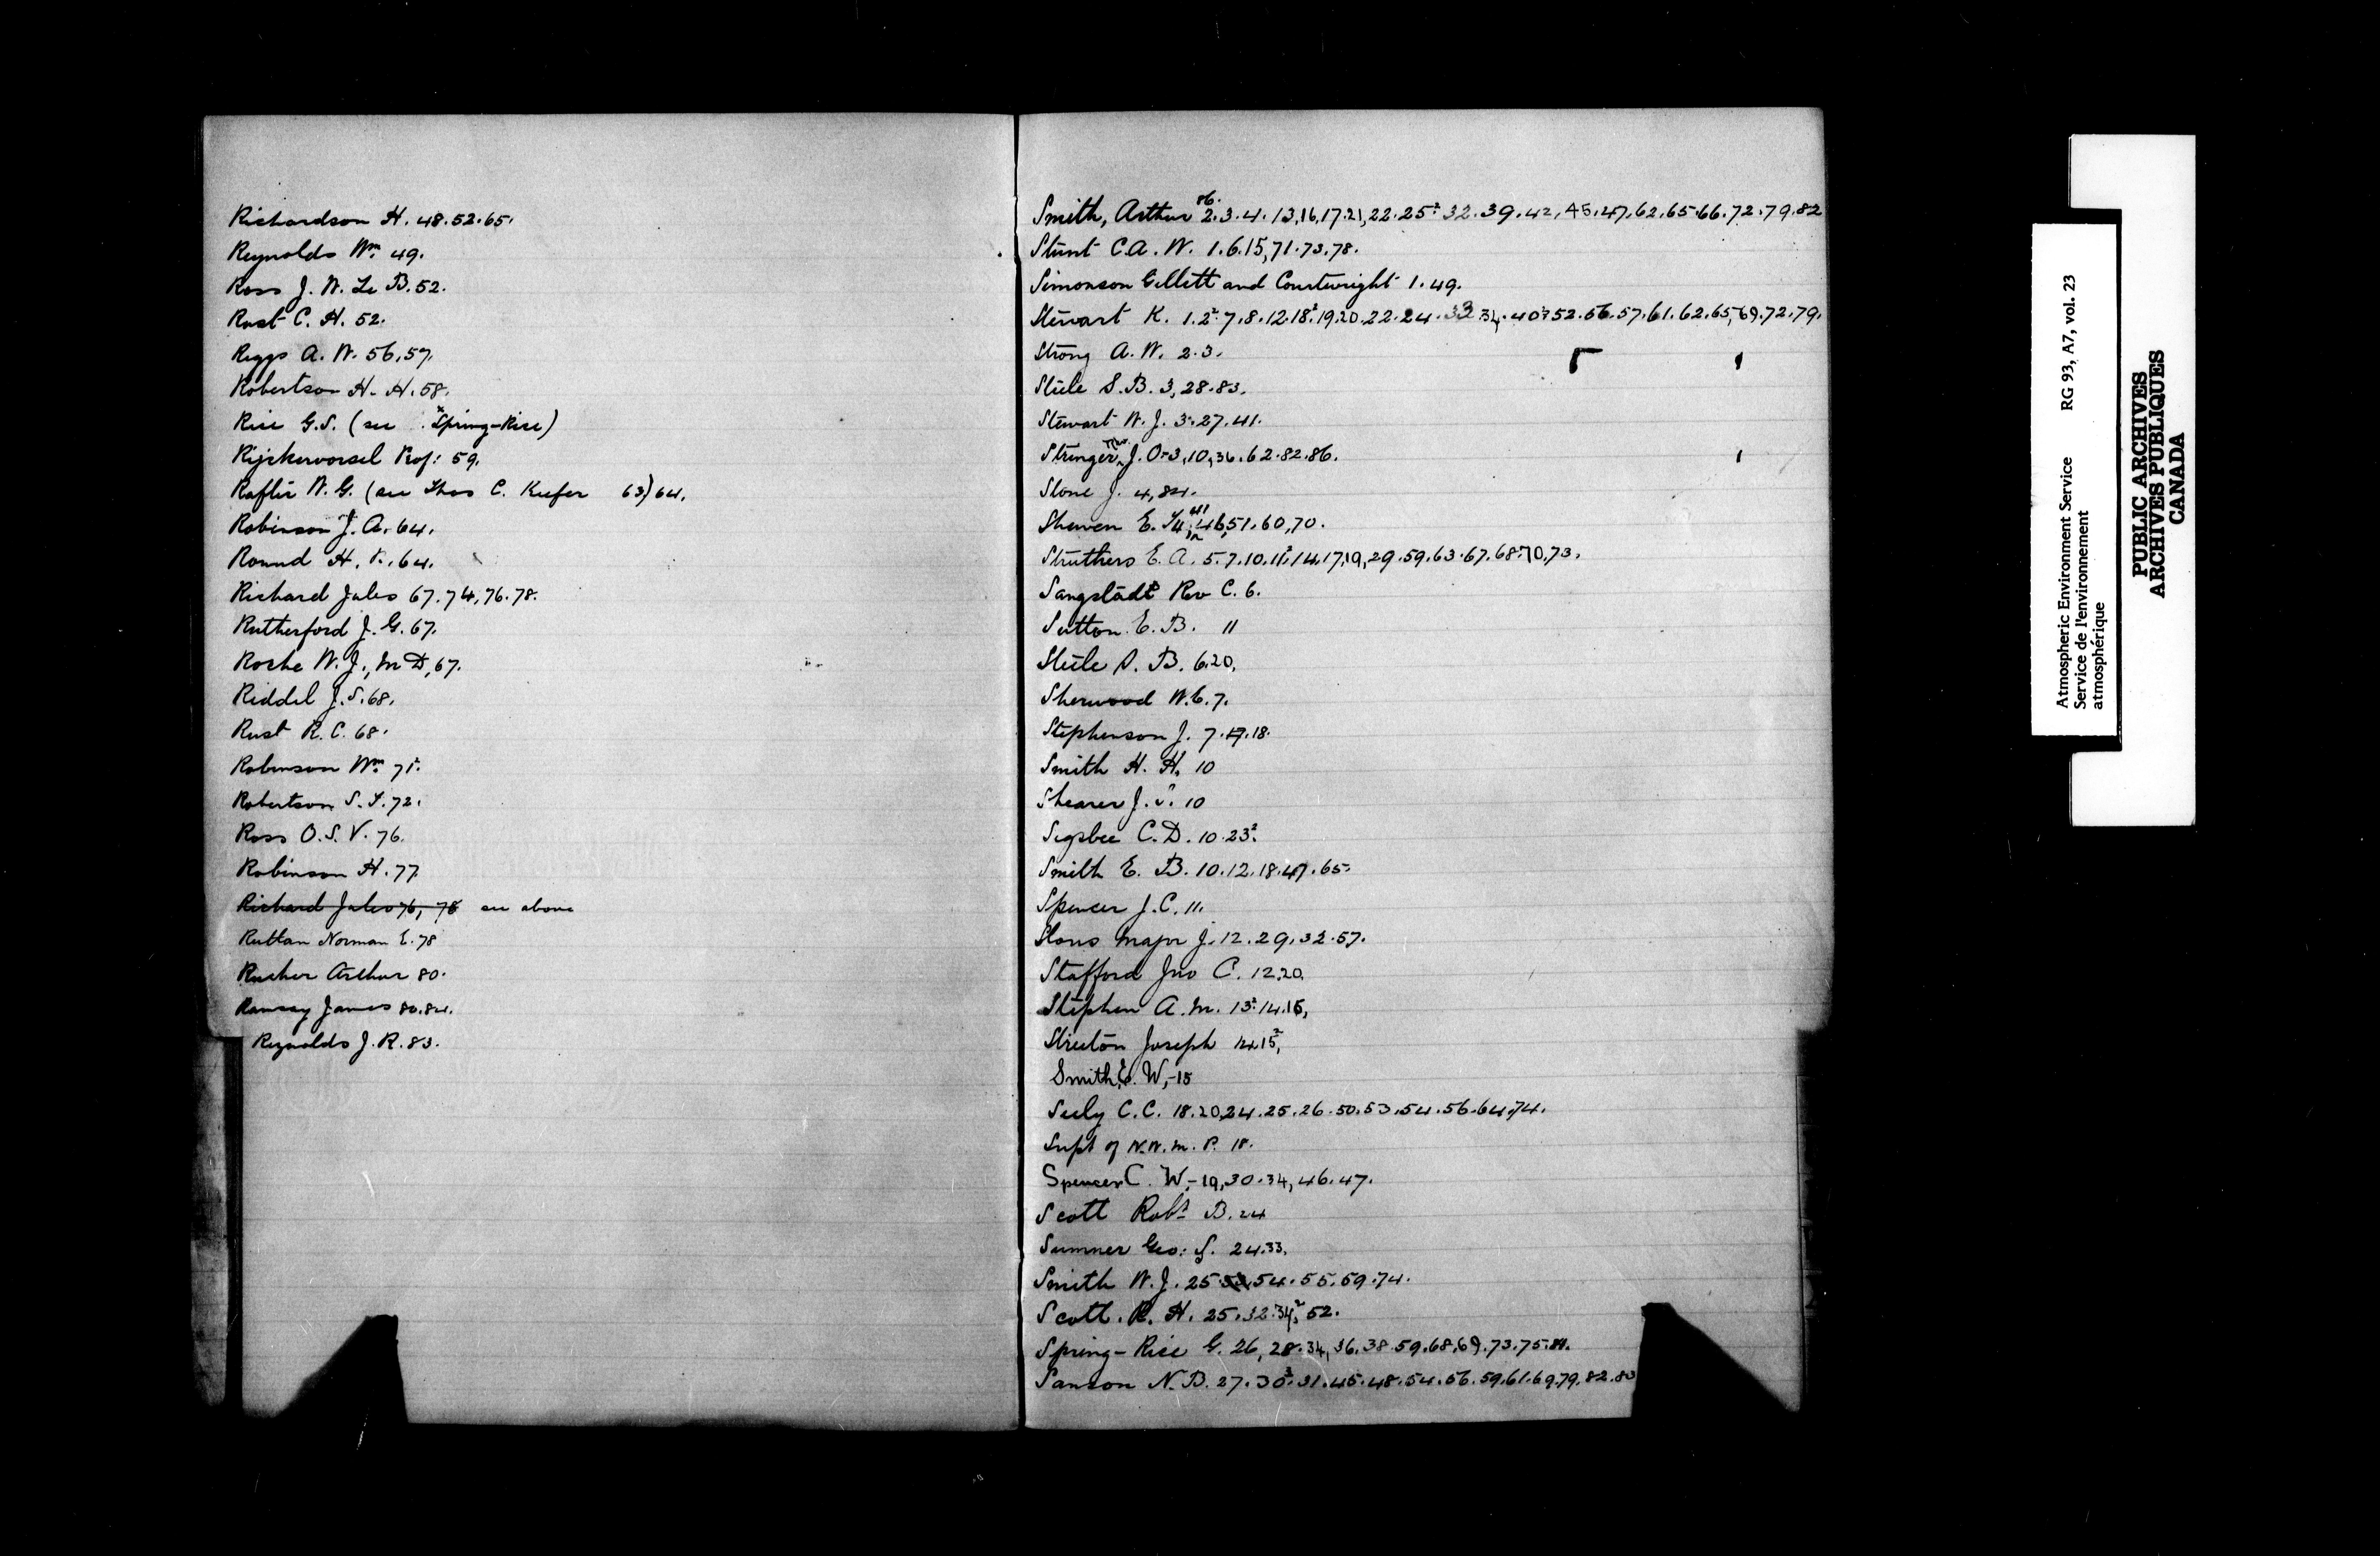 Richardson H. 48.52.65.
Reynolds Wm. 49.
Ross J. W. Le B. 52.
Rust C. H. 52.
Riggs A. W. 56.57.
Robertson H. H. 58.
Rice G.S. (see Spring-Rice)
Rijckevorsel Prof: 59.
W. G. (see Thos C. Keefer 63) 64.
Robinson J. A. 64.
Round H. 64.
Richard Jules 67.74,76.78.
Rutherford J. G. 67.
Roche W. J., M D, 67.
Riddel J. S. 68.
Rust R. C. 68.
Robinson Wm. 71².
Robertson S. 72.
Ross O. S. V. 76.
Robinson H. 77.
Richard Jules 76, 78 see above
Ruttan Norman E. 78
Arthur 80.
Ramsay James 80.84.
Reynolds J. R. 83.
86.
Smith, Arthur 2.3.4.13,16,17.21,22.25²32.39.42,45.47.62.65.66.72.79.82
Stunt C.A.W. 1.6.15,71.73.78.
Simonson Gillett and Courtwright 1.49.
Stewart K. 1.2²7.8.12.18²19.20.22.24.33 34.40²52.56.57.61.62.65,69.72.79.
Strong A. W. 2.3.
Steele S. B. 3,28.83.
Stewart W. J. 3.27.41.
Stringer, J. O-3,10,36.62.82.86.
Stone J. 4,84.
Shewen E. 46,51.60,70.
Struthers E. A. 5.7.10.11²14.17.19,29.59.63.67.68.70,73.
Rev C. 6.
Sutton E. B. 11
Steele S. B. 6.20.
Sherwood W. 7.
Stephenson J. 7.17.18.
Smith H. H. 10
Shearer J. S. 10
Sigsbee C. D. 10.23².
Smith E. B. 10.12.18.47.65.
Spencer J. C. 11.
Major J. 12.29.32.57.
Stafford Jno C. 12.20.
Stephen A. M. 13².14.15,
Streeton Joseph 14.15²,
Smith, E. W,-15
Seely C. C. 18.20,24.25.26.50.53.54.56.64.74.
Supt of N.W.M.P. 18.
Spencer C. W,-19,30.34,46.47.
Scott Robt B. 24
Sumner Geo: S. 24.33.
Smith W. J. 25.54.55.59.74.
Scott. R. H. 25.32.34².52.
Spring-Rice G. 26,28.34,36.38.59.68,69.73.75.81.
Sanson N. B. 27.30²31.45.48.54.56.59.61.69.79.82.83
Atmospheric Environment Service RG 93, A7, vol. 23
Service de l'environnement
atmosphérique
PUBLIC ARCHIVES
ARCHIVES PUBLIQUES
CANADA